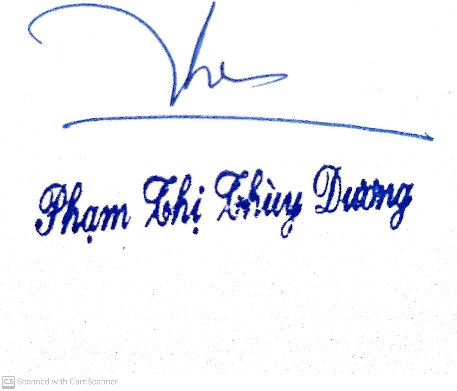 Phạm Thị Thùy Dương
Scanned with CamScanner